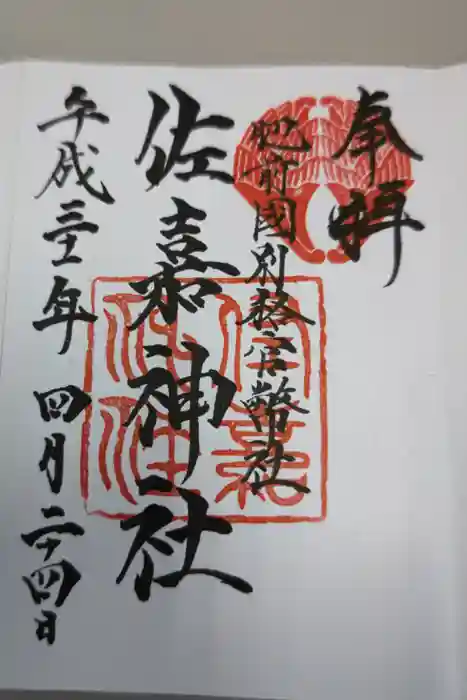 奉拝
肥前國別格官幣社
佐嘉神社
平成三十一年 四月二十四日
佐嘉神社